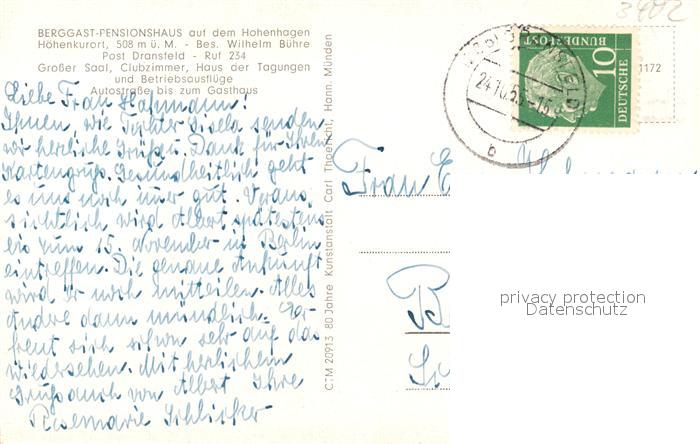 BERGGAST-PENSIONSHAUS auf dem Hohenhagen
Höhenkurort, 508 m ü. M. - Bes. Wilhelm Bühre
Post Dransfeld - Ruf 234
Großer Saal, Clubzimmer, Haus der Tagungen
und Betriebsausflüge
Autostraße bis zum Gasthaus
Liebe Frau Hahmann!
Ihnen, wie Tochter Gisela senden
wir herzliche Grüße. Dank für Ihren
Kartengruß. Gesundheitlich geht
es uns noch immer gut. Voraus-
sichtlich wird Albert spätestens
bis zum 15. November in Berlin
eintreffen. Die genaue Ankunft
wird er noch mitteilen. Alles
andere dann mündlich. Er
freut sich schon sehr auf das
Wiedersehen. Mit herzlichem
Gruß auch von Albert Ihre
Rosemarie Schlicker
C.T.M. 20913 80 Jahre Kunstanstalt Carl Thoericht, Hann. Münden
3402
24.10.55
b
DEUTSCHE
BUNDESPOST
10
1172
Frau E
B
privacy protection
Datenschutz